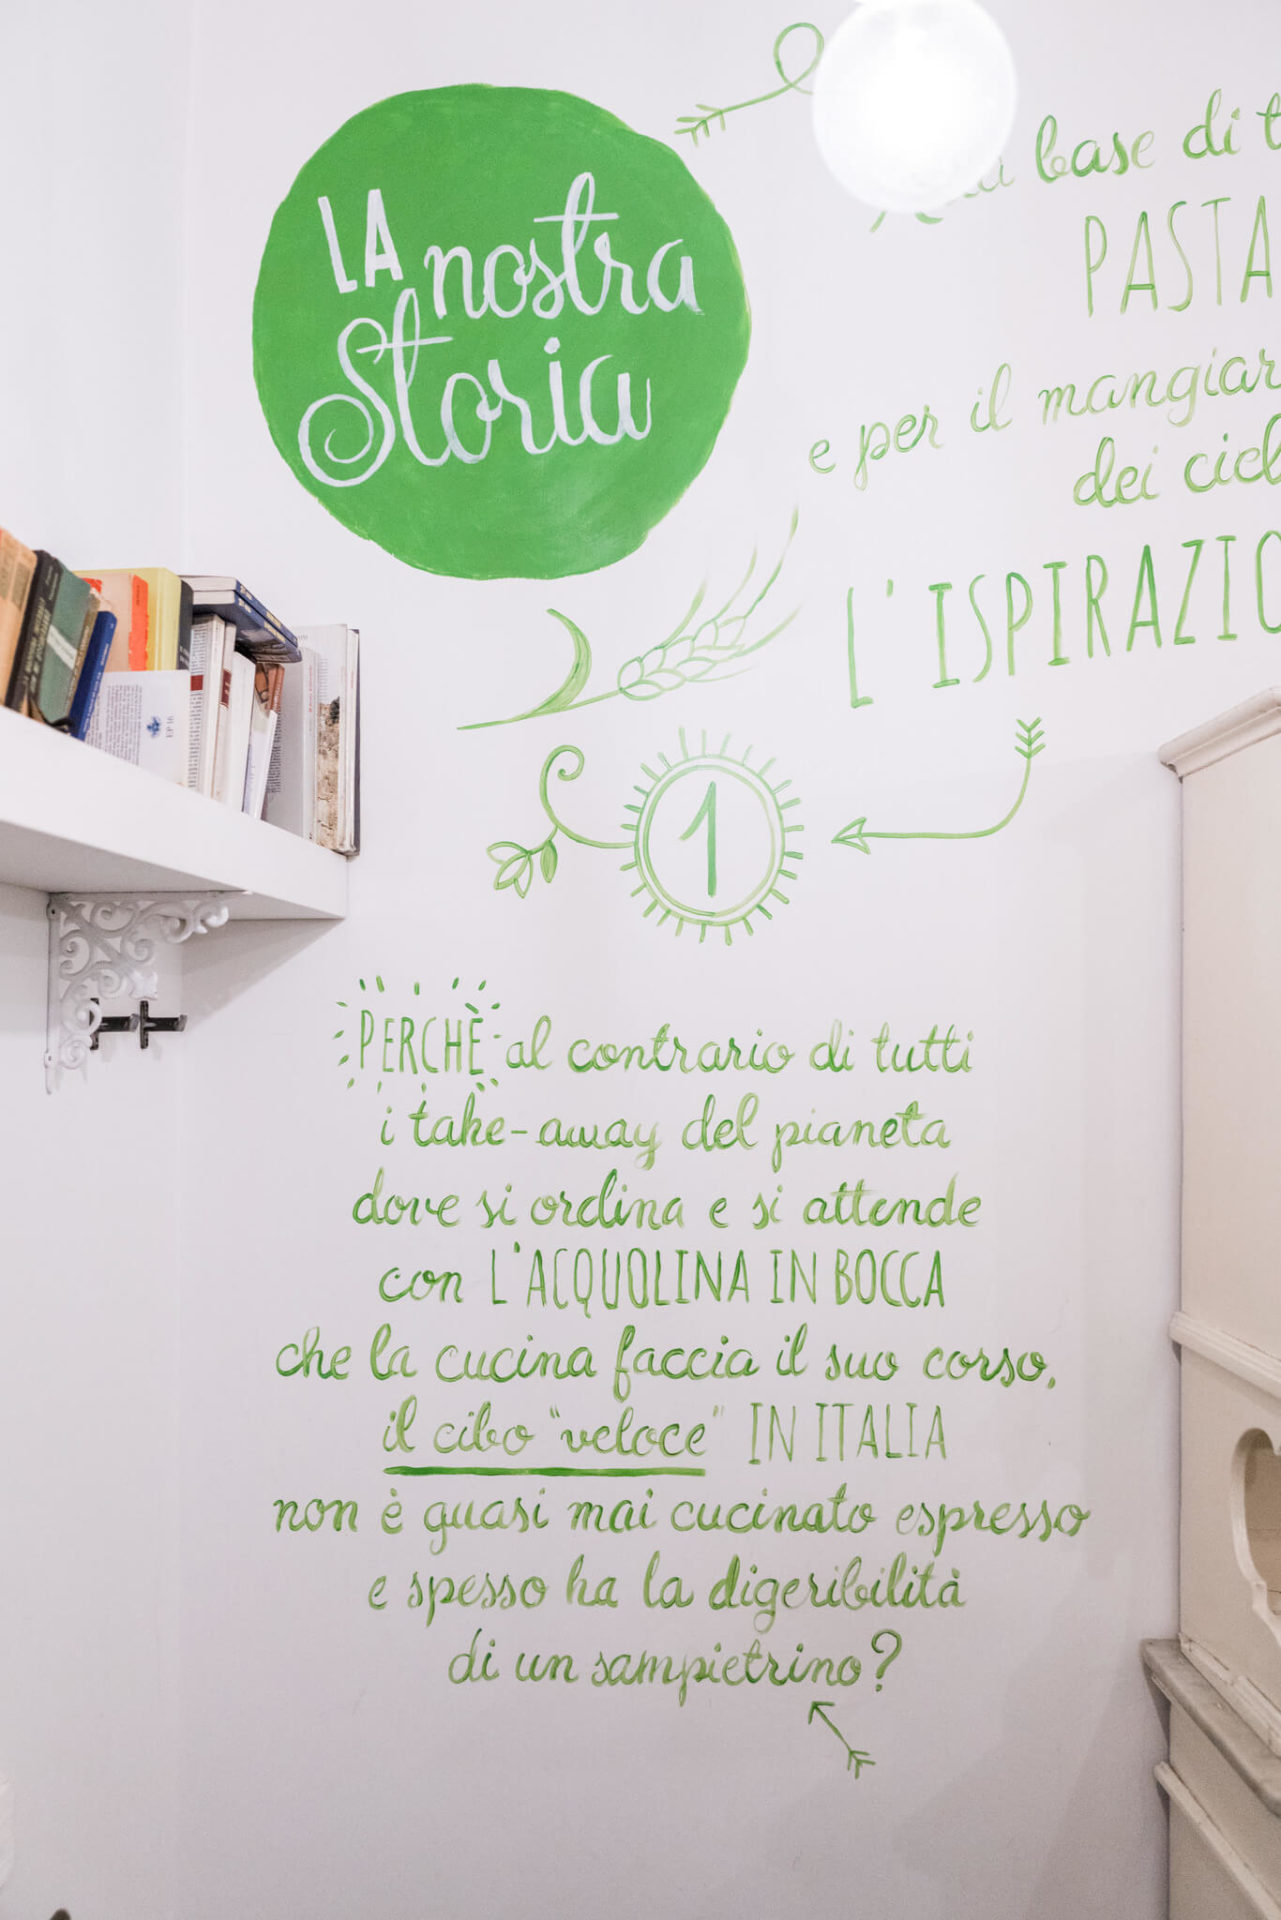 LA nostra
Storia
base di
PASTA
e per il
dei
1
PERCHÈ al contrario di tutti
i take-away del pianeta
dove si ordina e si attende
con L'ACQUOLINA IN BOCCA
che la cucina faccia il suo corso,
il cibo "veloce" IN ITALIA
non è quasi mai cucinato espresso
e spesso ha la digeribilità
di un sampietrino?